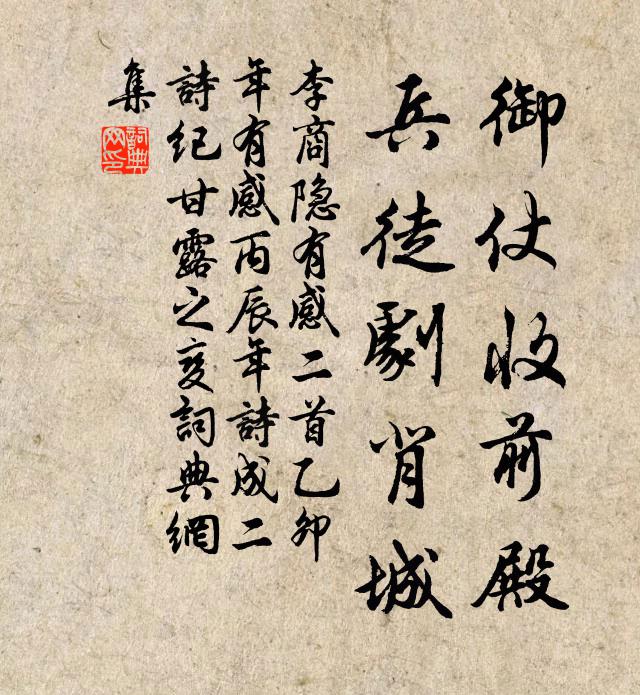 御仗收前殿
兵徒劇背城
李商隐有感二首乙卯
年有感丙辰年詩成二
詩纪甘露之变詞典網
集
詞典
网印